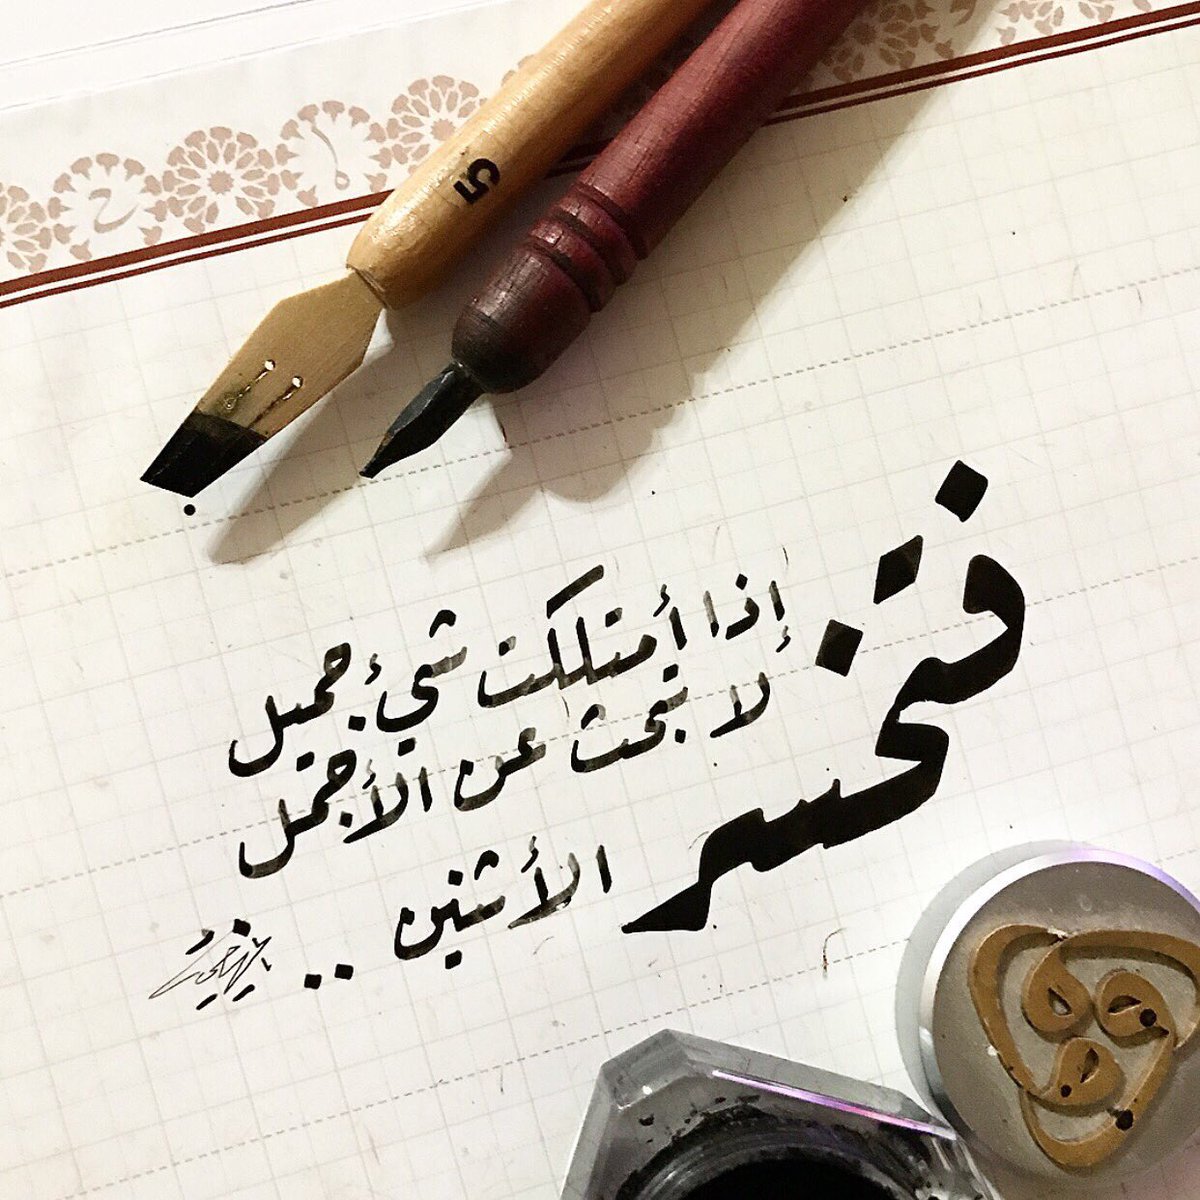 إذا أمتلكت شيء جميل
لا تبحث عن الأجمل
فتخسر الأثنين ..
5